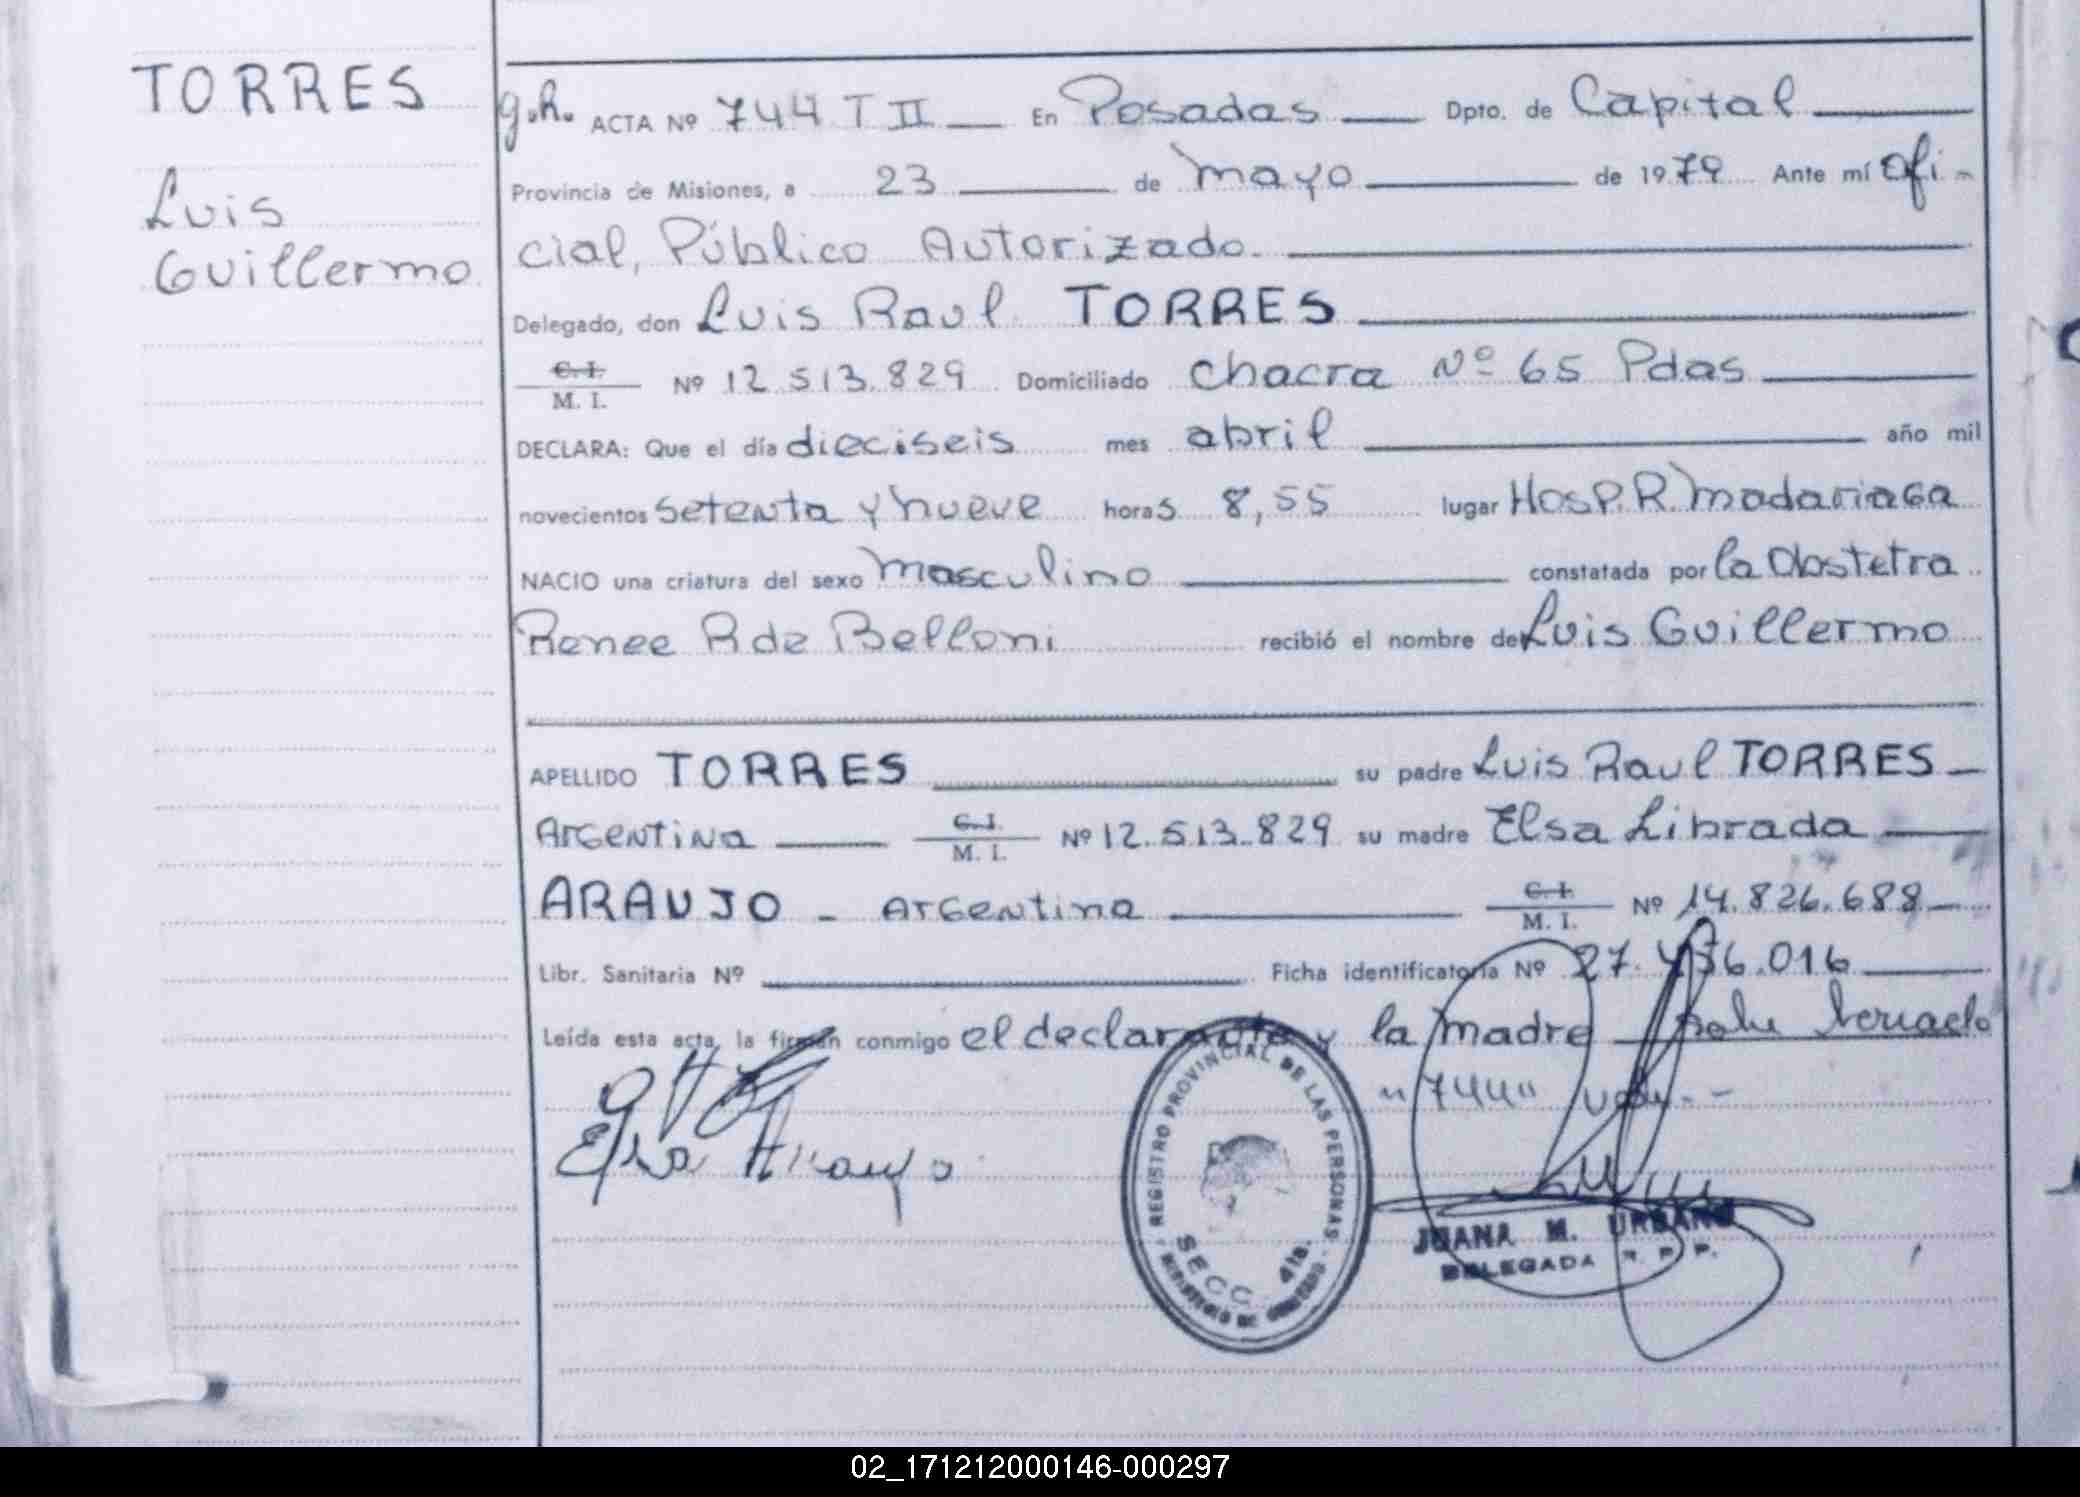 TORRES
Luis
Guillermo
g.h. ACTA Nº 744 T II En Posadas Dpto. de Capital
Provincia de Misiones, a 23 de mayo de 1979 Ante mí ofi-
cial, Público Autorizado.
Delegado, don Luis Raul TORRES
C. I.
M. I. Nº 12.513.829 Domiciliado Chacra Nº 65 Pdas
DECLARA: Que el día dieciseis mes abril año mil
novecientos setenta y nueve horas 8,55 lugar Hosp. R. Madariaga
NACIO una criatura del sexo masculino constatada por la Obstetra
Renee R de Belloni recibió el nombre de Luis Guillermo
APELLIDO TORRES su padre Luis Raul TORRES
Argentina C. I. M. I. Nº 12.513.829 su madre Elsa Librada
ARAUJO - Argentina C. I. M. I. Nº 14.826.688
Libr. Sanitaria Nº Ficha identificatoria Nº 27.476.016
Leída esta acta, la firman conmigo el declarante y la madre
"744"
Elsa Araujo
REGISTRO PROVINCIAL DE LAS PERSONAS
SECC. 4ta.
MINISTERIO DE GOBIERNO
JUANA M. URBANO
DELEGADA R. P. P.
02_171212000146-000297